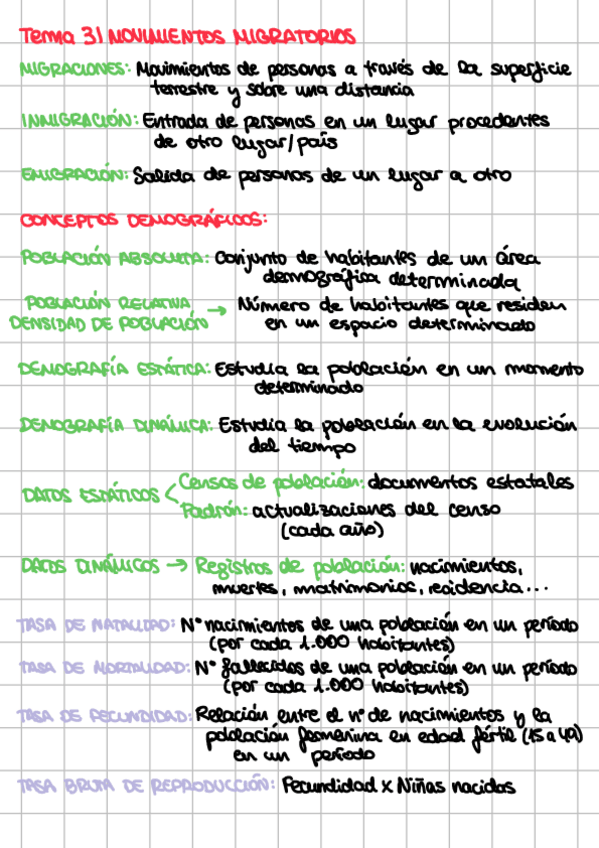 Tema 3| MOVIMIENTOS MIGRATORIOS
MIGRACIONES: Movimientos de personas a través de la superficie
terrestre y sobre una distancia
INMIGRACIÓN: Entrada de personas en un lugar procedentes
de otro lugar/país
EMIGRACIÓN: Salida de personas de un lugar a otro
CONCEPTOS DEMOGRÁFICOS:
POBLACIÓN ABSOLUTA: Conjunto de habitantes de un área
demográfica determinada
POBLACIÓN RELATIVA → Número de habitantes que residen
DENSIDAD DE POBLACIÓN en un espacio determinado
DEMOGRAFÍA ESTÁTICA: Estudia la población en un momento
determinado
DEMOGRAFÍA DINÁMICA: Estudia la población en la evolución
del tiempo
DATOS ESTÁTICOS < Censos de población: documentos estatales
Padrón: actualizaciones del censo
(cada año)
DATOS DINÁMICOS → Registros de población: nacimientos,
muertes, matrimonios, residencia...
TASA DE NATALIDAD: Nº nacimientos de una población en un período
(por cada 1.000 habitantes)
TASA DE MORTALIDAD: Nº fallecidos de una población en un período
(por cada 1.000 habitantes)
TASA DE FECUNDIDAD: Relación entre el nº de nacimientos y la
población femenina en edad fértil (15 a 49)
en un período
TASA BRUTA DE REPRODUCCIÓN: Fecundidad x Niñas nacidas